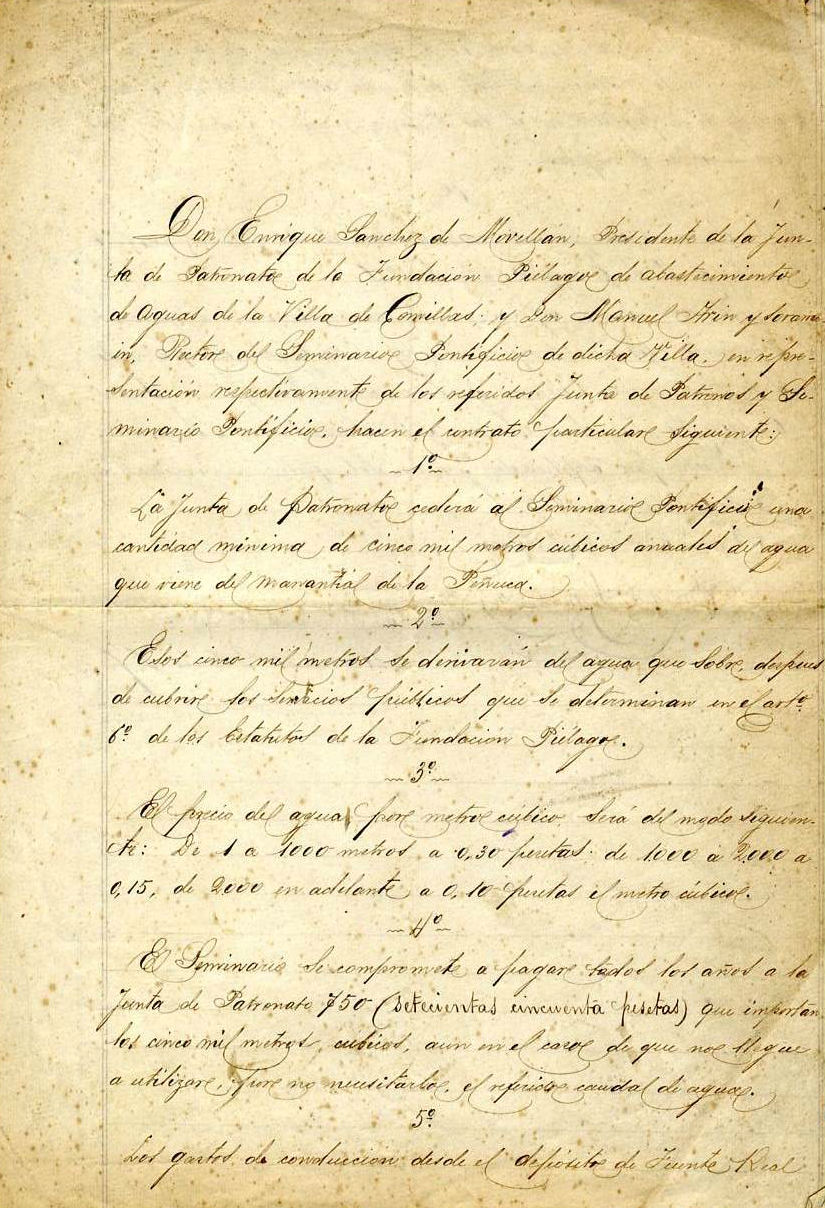 Don Enrique Sanchez de Movellan, Presidente de la Jun-
ta de Patronato de la Fundación Piélago de abastecimiento
de aguas de la Villa de Comillas; y Don Manuel Arin y
in, Rector del Seminario Pontificio de dicha Villa, en repre-
sentación respectivamente de los referidos Junta de Patronos y Se-
minario Pontificio, hacen el contrato particular siguiente:
1º
La Junta de Patronato cederá al Seminario Pontificio una
cantidad minima de cinco mil metros cúbicos anuales del agua
que viene del manantial de la Peñuca.
2º
Esos cinco mil metros se derivarán del agua que sobre, despues
de cubrir los servicios públicos que se determinan en el artº
6º de los Estatutos de la Fundación Piélago.
3º
El precio del agua por metro cúbico será del modo siguien-
te: De 1 a 1000 metros a 0,30 pesetas: de 1000 a 2.000 a
0,15, de 2000 en adelante a 0,10 pesetas el metro cúbico.
4º
El Seminario se compromete a pagar todos los años a la
Junta de Patronato 750 (setecientas cincuenta pesetas) que importan
los cinco mil metros cubicos, aun en el caso de que no llegue
a utilizar, por no necesitarlo, el referido caudal de agua.
5º
Los gastos de conduccion desde el depósito de Fuente Real